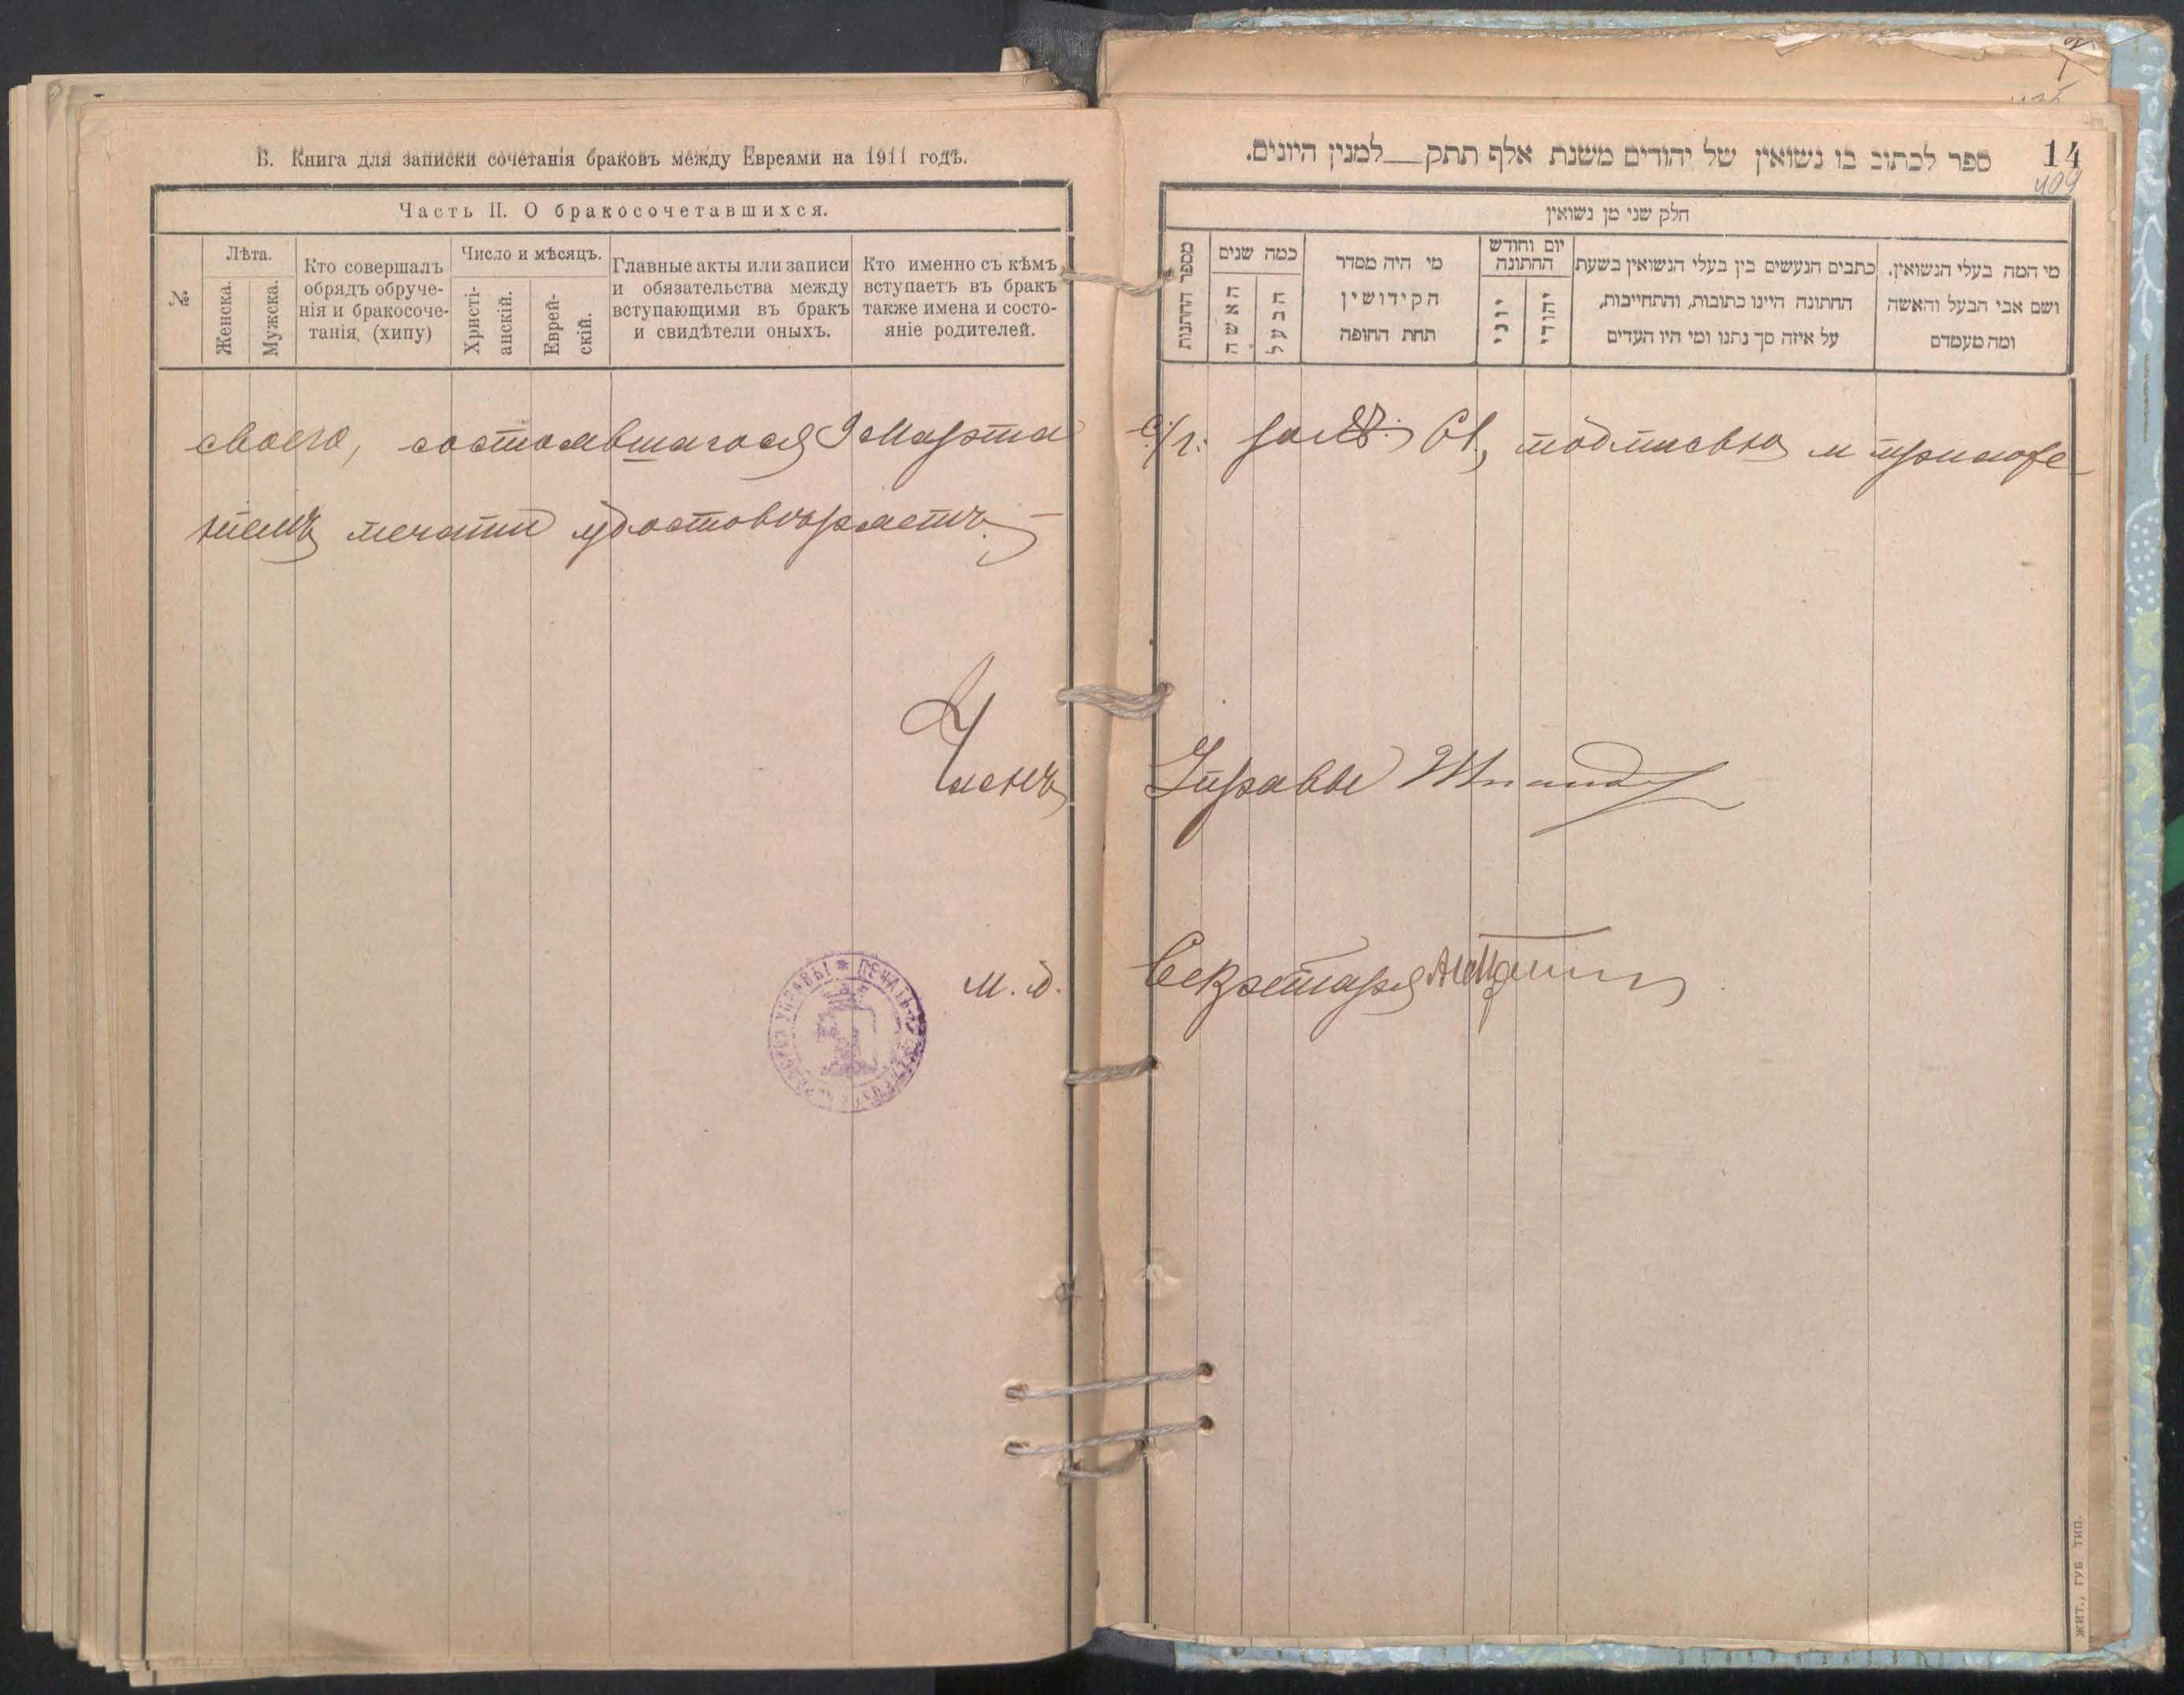 Б. Книга для записки сочетанія браковъ между Евреями на 1911 годъ.
Часть II. О бракосочетавшихся.
№
Лѣта.
Женска.
Мужска.
Кто совершалъ
обрядъ обруче-
нія и бракосоче-
танія, (хипу)
Число и мѣсяцъ.
Христі-
анскій.
Еврей-
скій.
Главные акты или записи
и обязательства между
вступающими въ бракъ
и свидѣтели оныхъ.
Кто именно съ кѣмъ
вступаетъ въ бракъ
также имена и состо-
яніе родителей.
14
409
ספר לכתוב בו נשואין של יהודים משנת אלף תתק__למנין היונים.
חלק שני מן נשואין
מספר החתנות
כמה שנים
האשה
הבעל
מי היה מסדר
הקידושין
תחת החופה
יום וחודש
החתונה
יוני
יהודי
כתבים הנעשים בין בעלי הנשואין בשעת
החתונה היינו כתובות, והתחייבות,
על איזה סך נתנו ומי היו העדים
מי המה בעלי הנשואין.
ושם אבי הבעל והאשה
ומה מעמדם
своего, состоявшагося 9 Марта с/г. подписью и приложе
ніемъ печати удостовѣряетъ.
Членъ Управы
И. д. Секретаря
ПЕЧАТЬ УПРАВЫ
ЖИТ., ГУБ. ТИП.